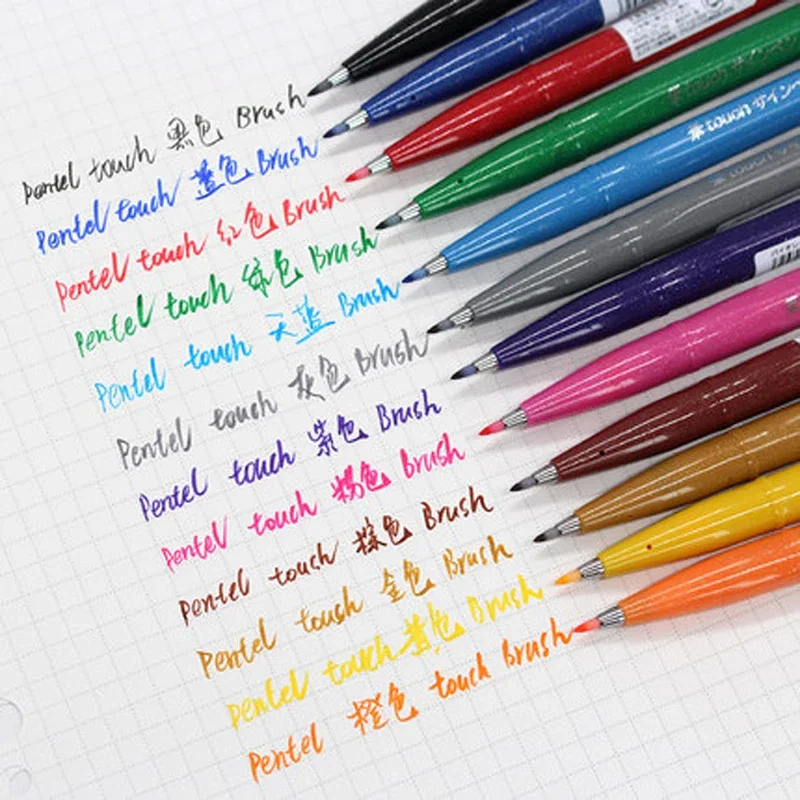 Pentel touch 黑色 Brush
Pentel touch 蓝色 Brush
Pentel touch 红色 Brush
Pentel touch 绿色 Brush
Pentel touch 天蓝 Brush
Pentel touch 灰色 Brush
Pentel touch 紫色 Brush
Pentel touch 粉色 Brush
Pentel touch 棕色 Brush
Pentel toush 金色 Brush
Pentel touch 黄色 Brush
Pentel 橙色 touch Brush
touch サインペン
touch サインペン